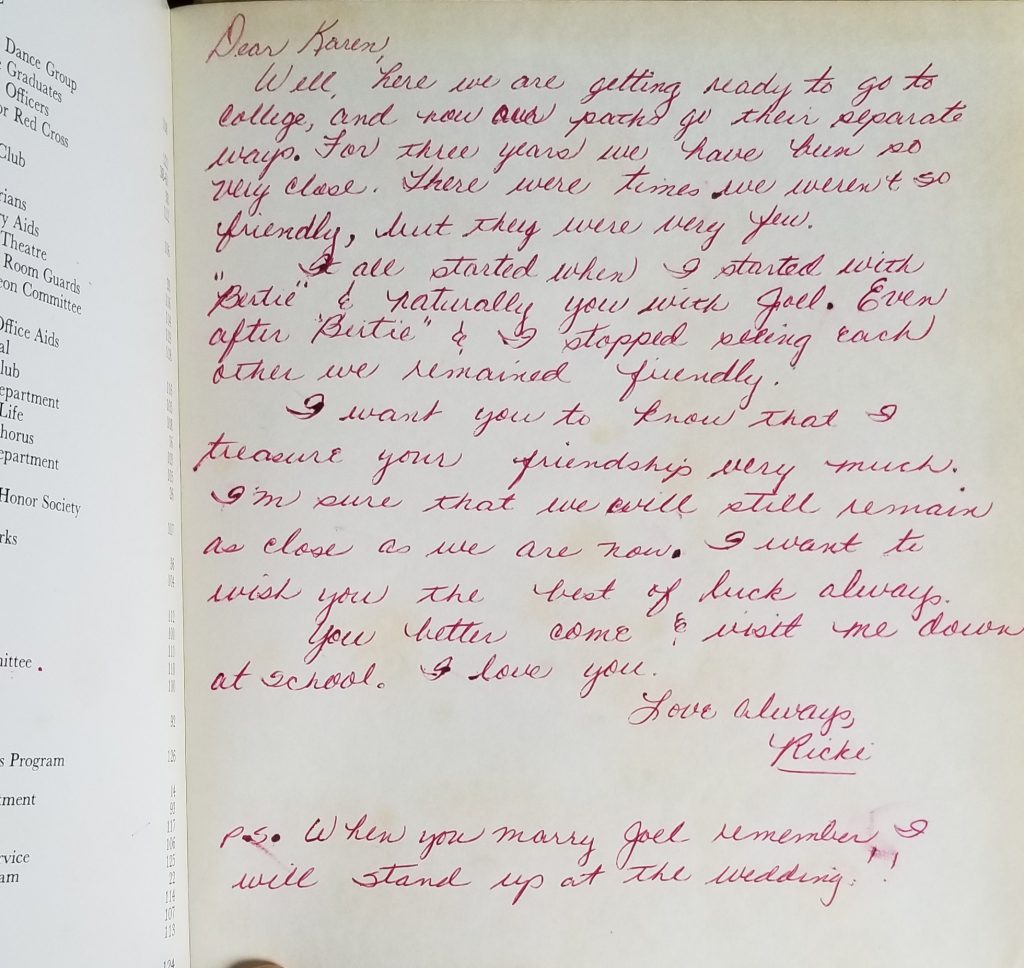 Dance Group
Graduates
Officers
or Red Cross
Club
rians
ry Aids
Theatre
Room Guards
eon Committee
Office Aids
al
lub
epartment
Life
horus
epartment
Honor Society
rks
mittee
s Program
tment
rvice
am
92
126
14
93
117
106
125
22
114
107
113
124
Dear Karen,
Well, here we are getting ready to go to
college, and now our paths go their separate
ways. For three years we have been so
very close. There were times we weren't so
friendly, but they were very few.
It all started when I started with
"Bertie" & naturally you with Joel. Even
after "Bertie" & I stopped seeing each
other we remained friendly.
I want you to know that I
treasure your friendship very much.
I'm sure that we will still remain
as close as we are now. I want to
wish you the best of luck always.
You better come & visit me down
at school. I love you.
Love always,
Ricki
P.S. When you marry Joel remember, I
will stand up at the wedding!!